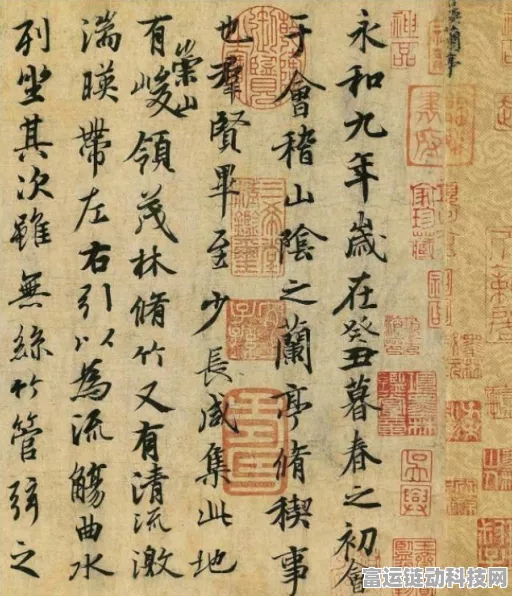 永和九年歲在癸丑暮春之初會
于會稽山陰之蘭亭脩稧事
也羣賢畢至少長咸集此地
有崇山峻領茂林脩竹又有清流激
湍暎帶左右引以為流觴曲水
列坐其次雖無絲竹管弦之
神品
富运链动科技网